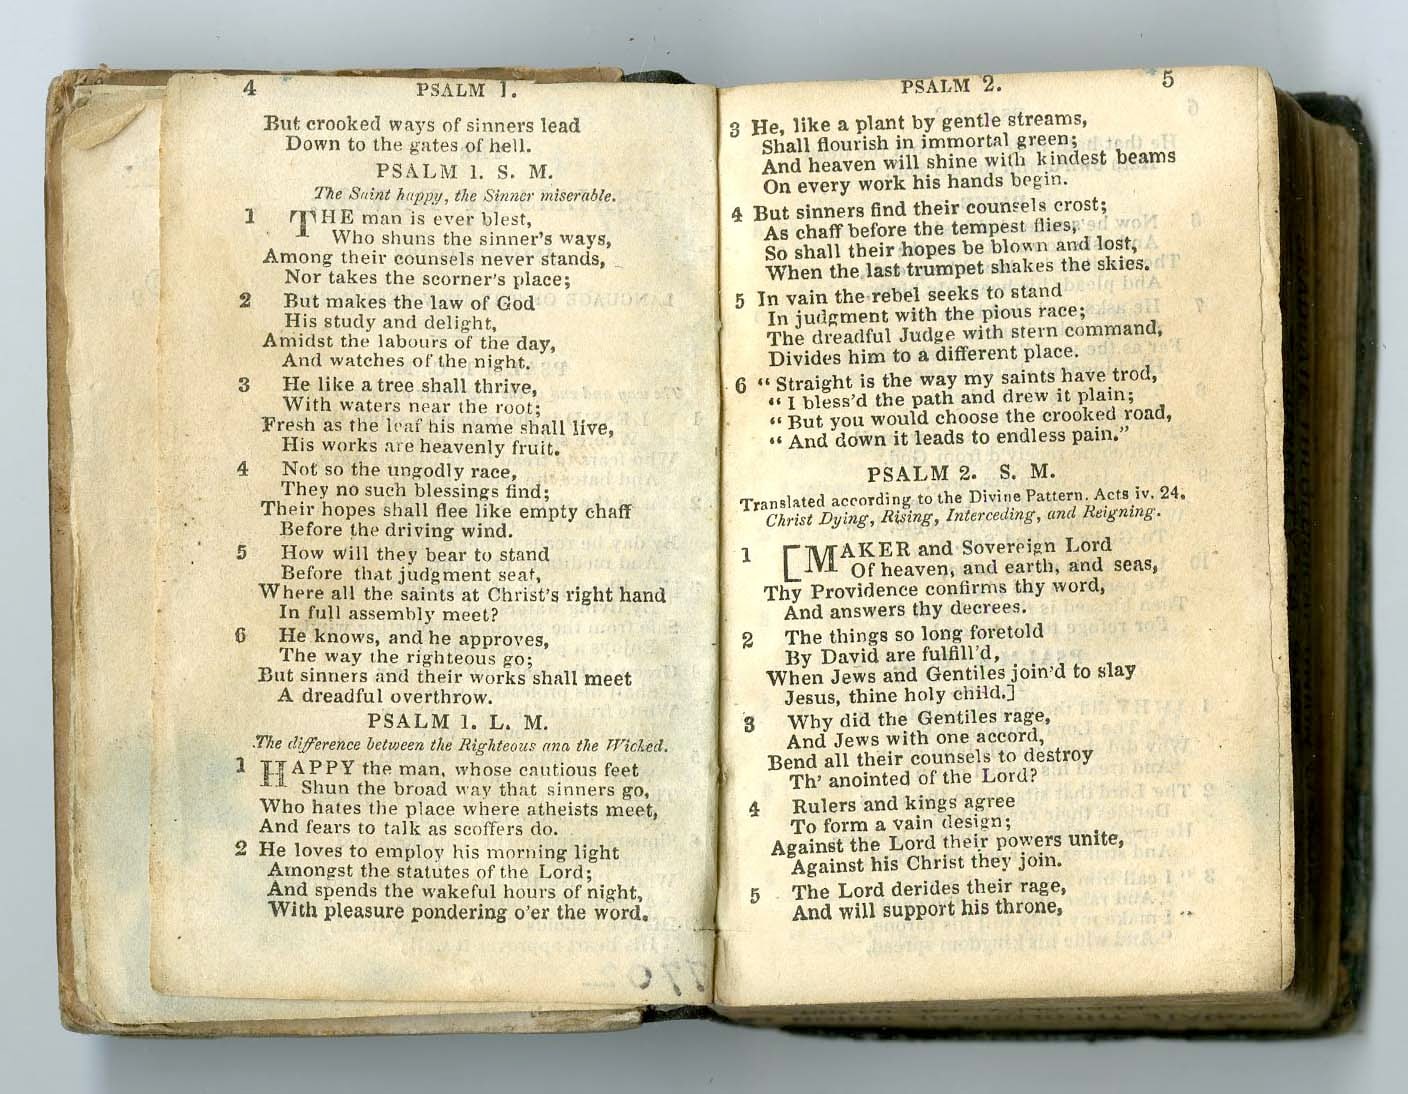 4 PSALM 1.
But crooked ways of sinners lead
Down to the gates of hell.
PSALM 1. S. M.
The Saint happy, the Sinner miserable.
1 THE man is ever blest,
Who shuns the sinner's ways,
Among their counsels never stands,
Nor takes the scorner's place;
2 But makes the law of God
His study and delight,
Amidst the labours of the day,
And watches of the night.
3 He like a tree shall thrive,
With waters near the root;
Fresh as the leaf his name shall live,
His works are heavenly fruit.
4 Not so the ungodly race,
They no such blessings find;
Their hopes shall flee like empty chaff
Before the driving wind.
5 How will they bear to stand
Before that judgment seat,
Where all the saints at Christ's right hand
In full assembly meet?
6 He knows, and he approves,
The way the righteous go;
But sinners and their works shall meet
A dreadful overthrow.
PSALM 1. L. M.
The difference between the Righteous and the Wicked.
1 HAPPY the man, whose cautious feet
Shun the broad way that sinners go,
Who hates the place where atheists meet,
And fears to talk as scoffers do.
2 He loves to employ his morning light
Amongst the statutes of the Lord;
And spends the wakeful hours of night,
With pleasure pondering o'er the word.
PSALM 2. 5
3 He, like a plant by gentle streams,
Shall flourish in immortal green;
And heaven will shine with kindest beams
On every work his hands begin.
4 But sinners find their counsels crost;
As chaff before the tempest flies,
So shall their hopes be blown and lost,
When the last trumpet shakes the skies.
5 In vain the rebel seeks to stand
In judgment with the pious race;
The dreadful Judge with stern command,
Divides him to a different place.
6 "Straight is the way my saints have trod,
"I bless'd the path and drew it plain;
"But you would choose the crooked road,
"And down it leads to endless pain."
PSALM 2. S. M.
Translated according to the Divine Pattern. Acts iv. 24.
Christ Dying, Rising, Interceding, and Reigning.
1 [MAKER and Sovereign Lord
Of heaven, and earth, and seas,
Thy Providence confirms thy word,
And answers thy decrees.
2 The things so long foretold
By David are fulfill'd,
When Jews and Gentiles join'd to slay
Jesus, thine holy child.]
3 Why did the Gentiles rage,
And Jews with one accord,
Bend all their counsels to destroy
Th' anointed of the Lord?
4 Rulers and kings agree
To form a vain design;
Against the Lord their powers unite,
Against his Christ they join.
5 The Lord derides their rage,
And will support his throne,